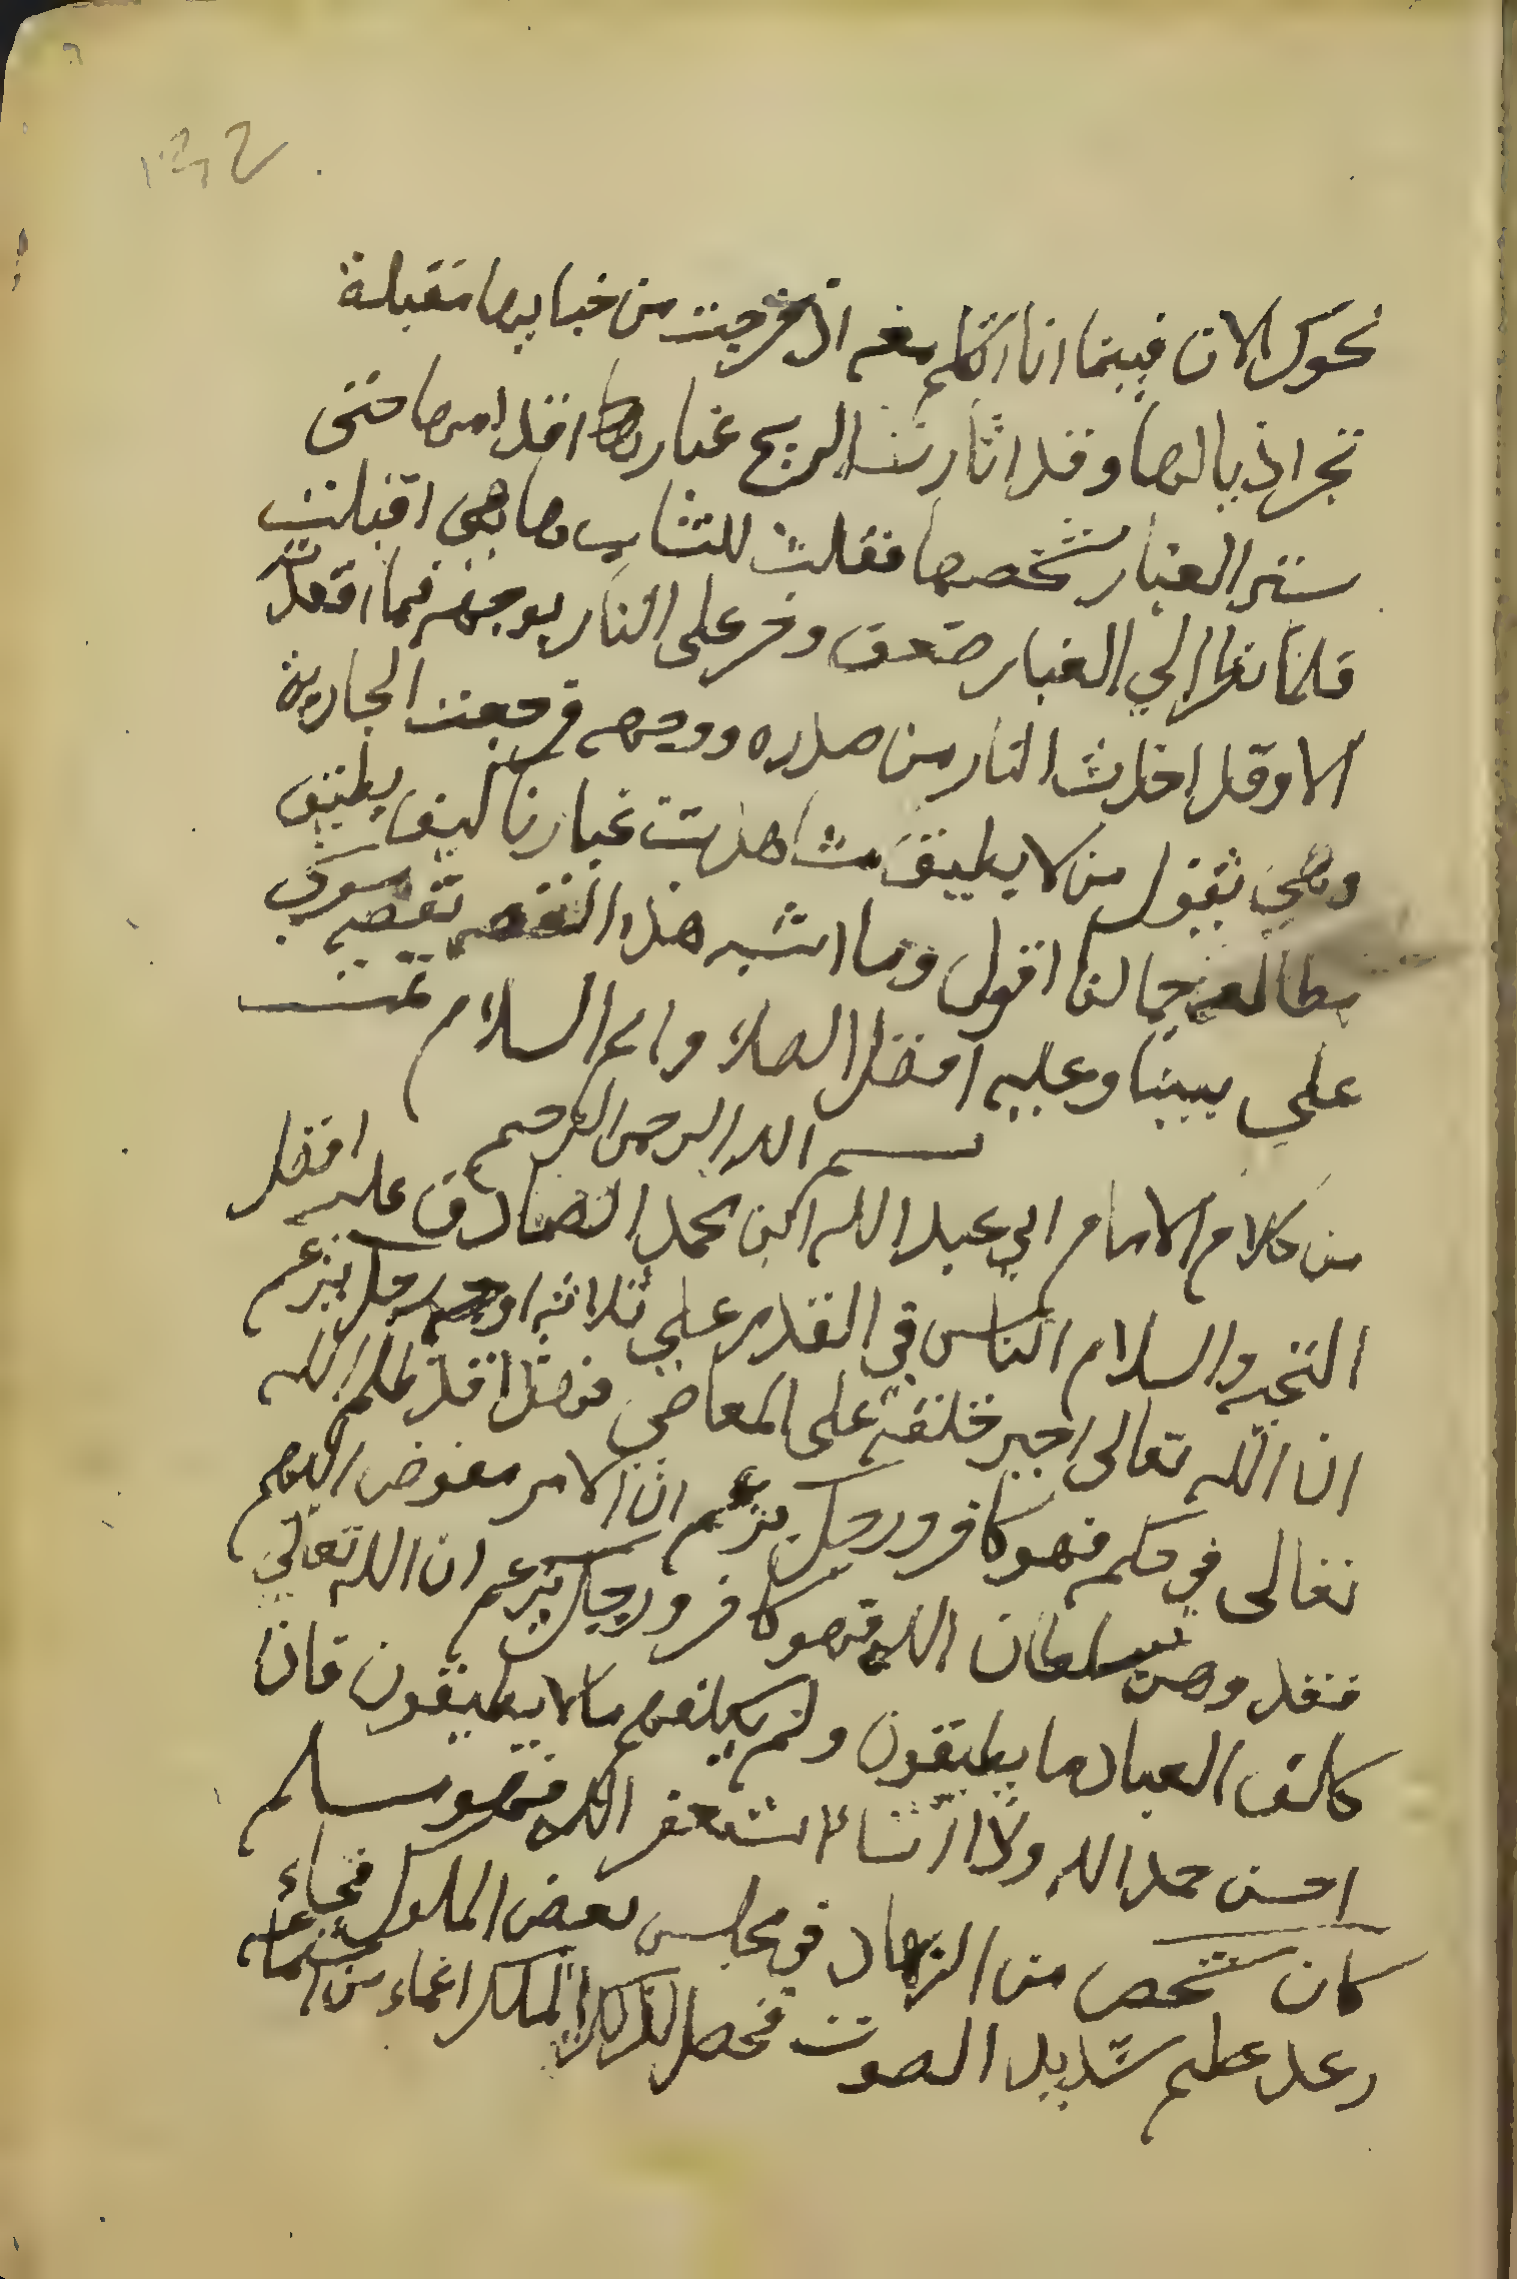 132
نحوك الان فبينما انا اكلم معه اذ خرجت من خبايها مقبلة
تجر اذيالها وقد اثارت الريح غبار اقدامها حتى
ستر الغبار شخصها فقلت للشاب ها هي اقبلت
فلما نظر الي الغبار صعق وخر على النار بوجهه فما اقعدته
الا وقد اخذت النار من صدره ووجهه فرجعت الجارية
وهي تقول من لا يطيق مشاهدت غبارنا كيف يطيق
مطالعة جمالنا اقول وما اشبه هذا القصه بقصه موسى
على نبينا وعليه افضل الصلاة واتم السلام تمت
بسم الله الرحمن الرحيم
من كلام الامام ابي عبد الله ابن محمد الصادق عليه افضل
التحيه والسلام الناس في القدر علي ثلاثه اوجه رجل يزعم
ان الله تعالى اجبر خلقه على المعاصي فهذا قد ظلم الله
تعالى في حكمه فهو كافر ورجل يزعم ان الامر مفوض اليهم
فقد وهن سلطان الله فهو كافر ورجل يزعم ان الله تعالى
كلف العباد ما يطيقون ولم يكلفهم ما لا يطيقون فان
احسن حمد الله واذا اساء استغفر الله فهو مسلم
كان شخص من الزهاد في مجلس بعض الملوك فجاء
رعد عظيم شديد الصوت فحصل لذلك الملك اغماء من استماعه